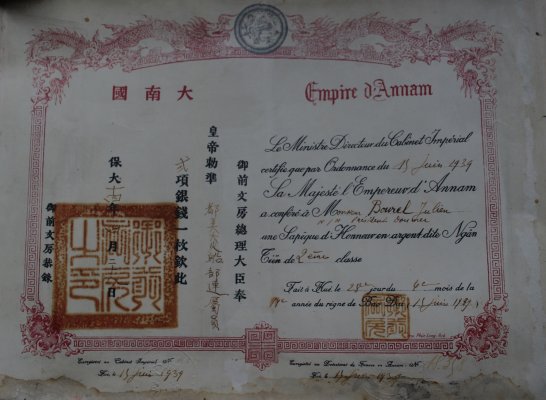 大南國
Empire d'Annam
Le Ministre Directeur du Cabinet Impérial
certifie que par Ordonnance du 15 juin 1939
Sa Majesté l'Empereur d'Annam
a conféré à Monsieur Bourel Julien
une Sapèque d'Honneur en argent dite Ngân
Tiên de 2ème classe
Fait à Hué le 28e jour du 4e mois de la
année du règne de Bao Dai (15 juin 1939)
御前文房總理大臣奉
皇帝勅準
項銀錢一枚欽此
保大 年 月 日
御前文房恭錄
Enregistré au Cabinet Impérial N°
Hué, le 15 juin 1939
Enregistré au N°
Hué, le 15 juin 1939